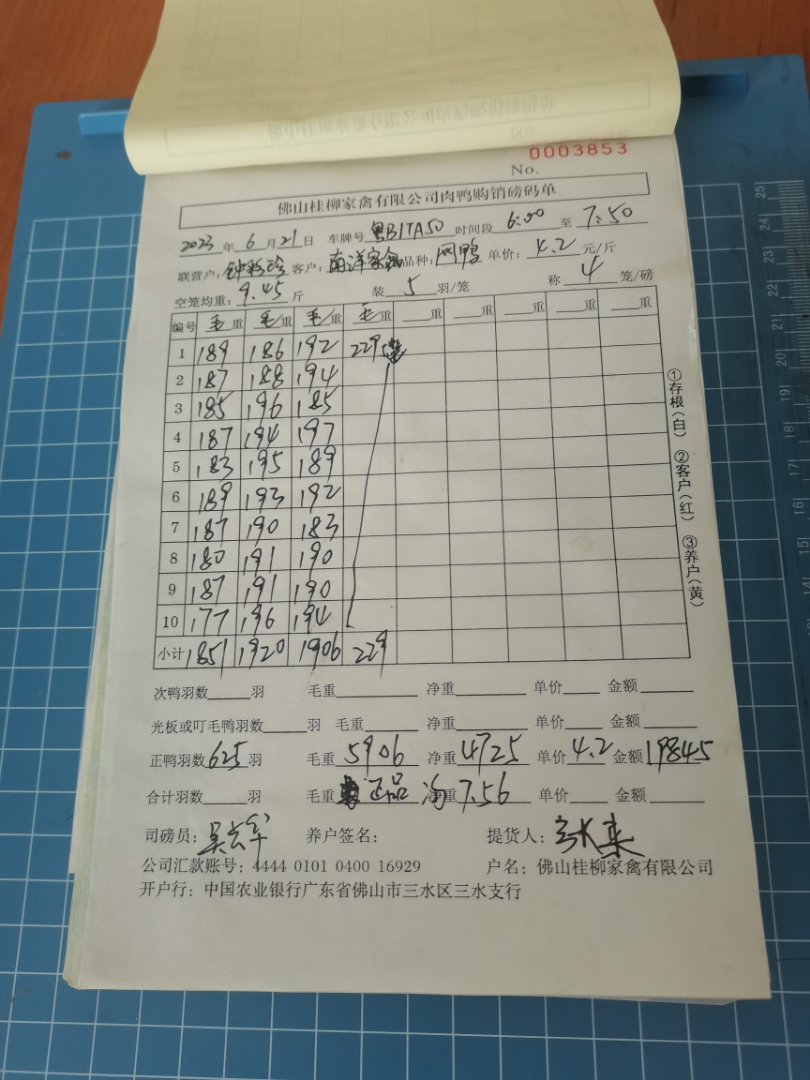 0003853
No.
佛山桂柳家禽有限公司肉鸭购销磅码单
2023 年 6 月 21 日 车牌号 粤B1TA50 时间段 6:00 至 7:50
联营户: 钟彩玲 客户: 南洋家禽 品种: 网鸭 单价: 4.2 元/斤
空笼均重: 9.45 斤 装 5 羽/笼 称 4 笼/磅
编号 毛重 毛重 毛重 毛重 重 重 重 重 重
1 189 186 192 229
2 187 188 194
3 185 196 185
4 187 194 197
5 183 195 189
6 189 193 192
7 187 190 183
8 180 191 190
9 187 191 190
10 177 196 194
小计 1851 1920 1906 229
①存根(白) ②客户(红) ③养户(黄)
次鸭羽数 羽 毛重 净重 单价 金额
光板或叮毛鸭羽数 羽 毛重 净重 单价 金额
正鸭羽数 625 羽 毛重 5906 净重 4725 单价 4.2 金额 19845
合计羽数 羽 毛重 正品 净重 7.56 单价 金额
司磅员: 养户签名: 提货人:
公司汇款账号: 4444 0101 0400 16929 户名: 佛山桂柳家禽有限公司
开户行: 中国农业银行广东省佛山市三水区三水支行